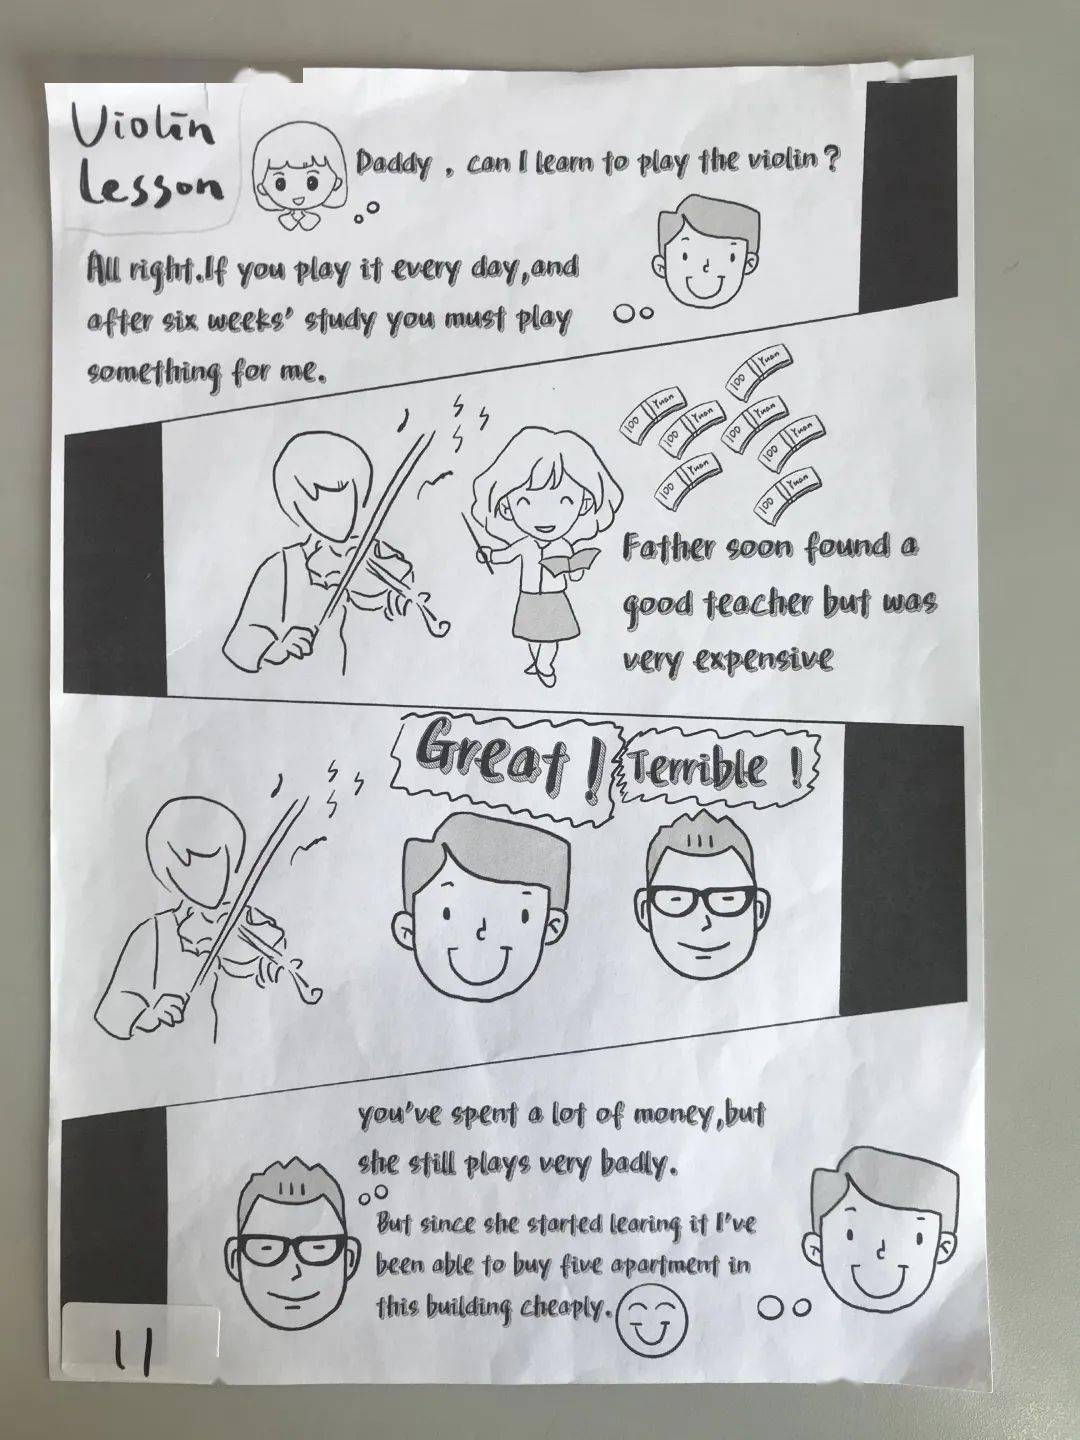 Violin
Lesson
Daddy , can I learn to play the violin ?
All right.If you play it every day,and
after six weeks' study you must play
something for me.
100 Yuan
100 Yuan
100 Yuan
100 Yuan
100 Yuan
100 Yuan
100 Yuan
Father soon found a
good teacher but was
very expensive
Great !
Terrible !
you've spent a lot of money,but
she still plays very badly.
But since she started learing it I've
been able to buy five apartment in
this building cheaply.
11